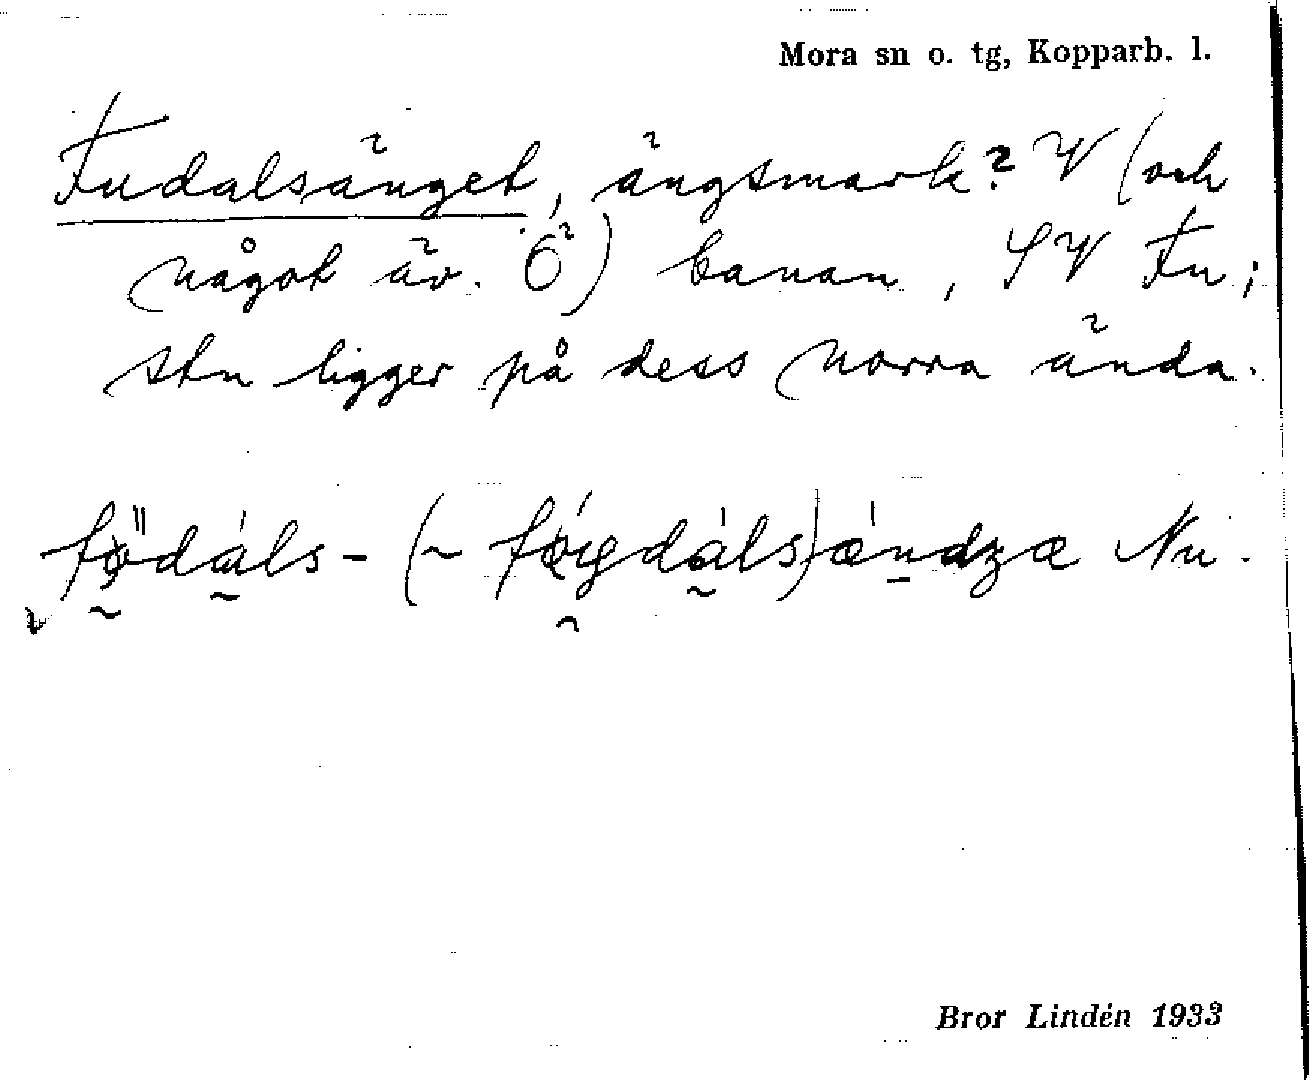 Mora sn o. tg, Kopparb. l.
Fudalsänget, ängsmark? V (och
något äv. Ö) banan, SV Fu;
stn ligger på dess norra ända.
Nu.
Bror Lindén 1933